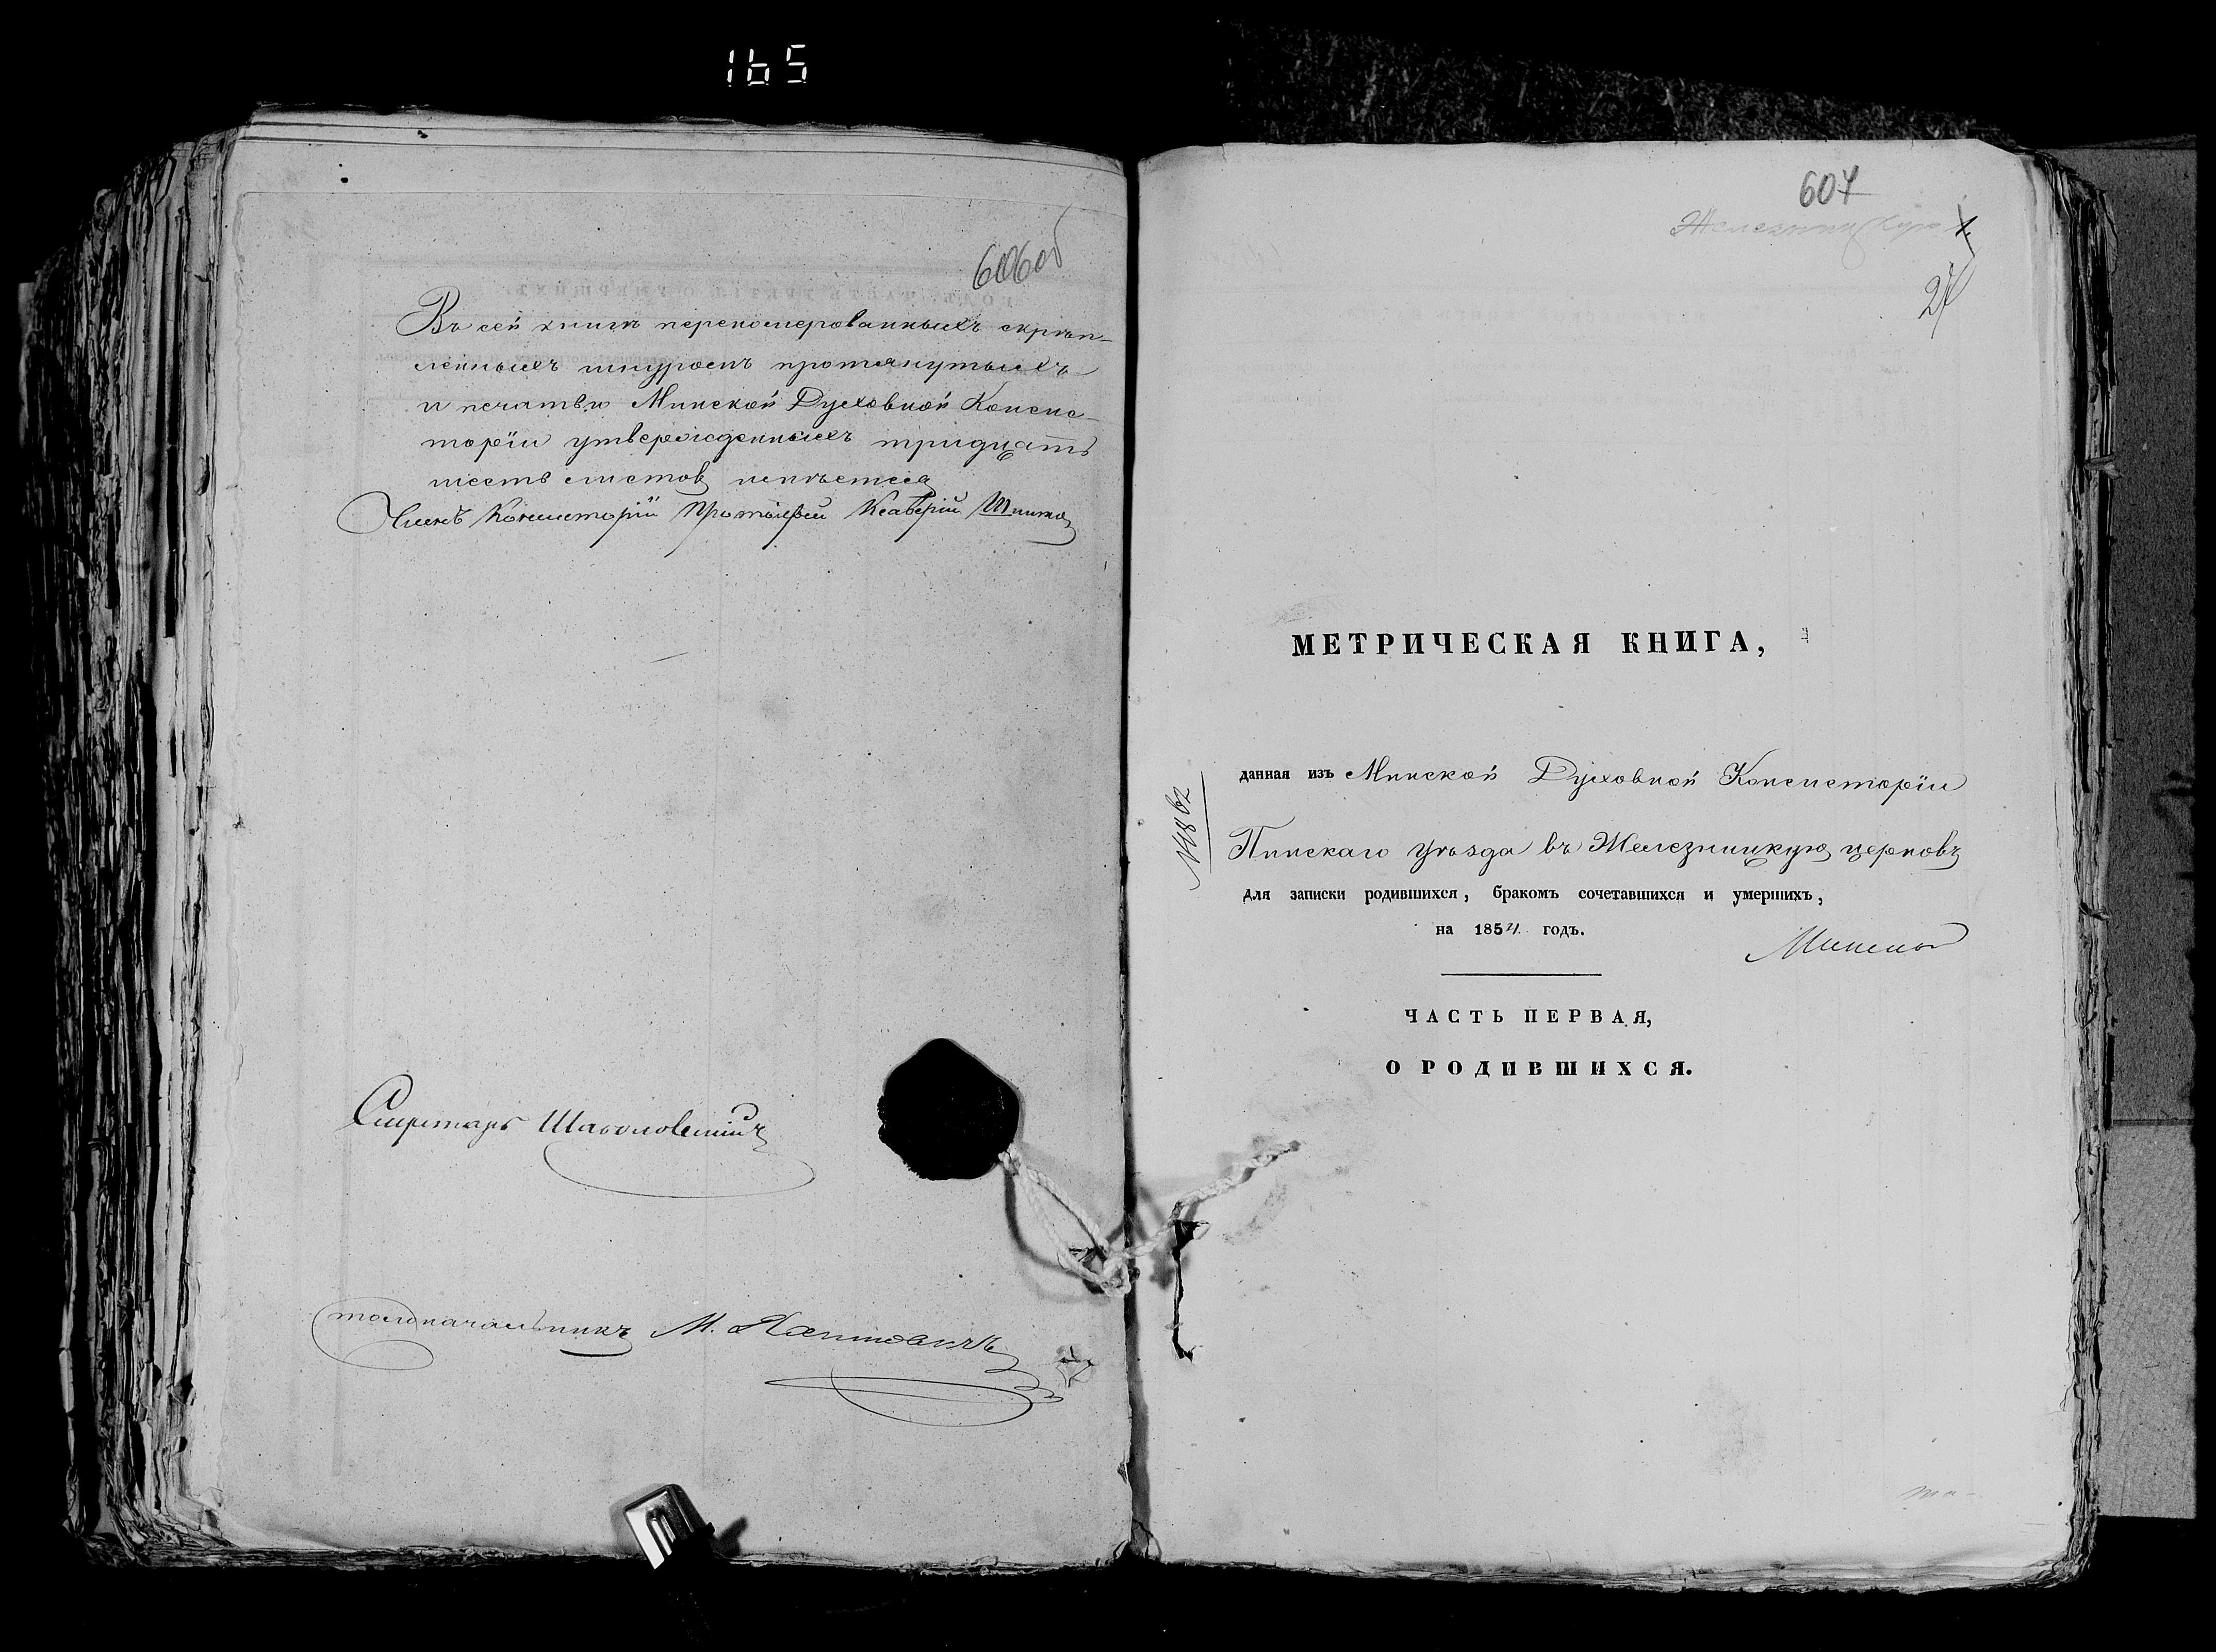 165
606об
Въ сей книгѣ перенумерованныхъ скрѣп-
ленныхъ шнуромъ протянутыхъ
и печатью Минской Духовной Консис-
торіи утвержденныхъ тридцать
шесть листовъ имѣется
Членъ Консисторіи Протоіерей Ксаверій
Секретарь
Столоначальникъ М.
607
1.
27
МЕТРИЧЕСКАЯ КНИГА,
данная изъ Минской Духовной Консисторіи
Пинскаго уѣзда въ Железницкую церковь
для записки родившихся, бракомъ сочетавшихся и умершихъ,
на 1854 годъ.
ЧАСТЬ ПЕРВАЯ,
О РОДИВШИХСЯ.